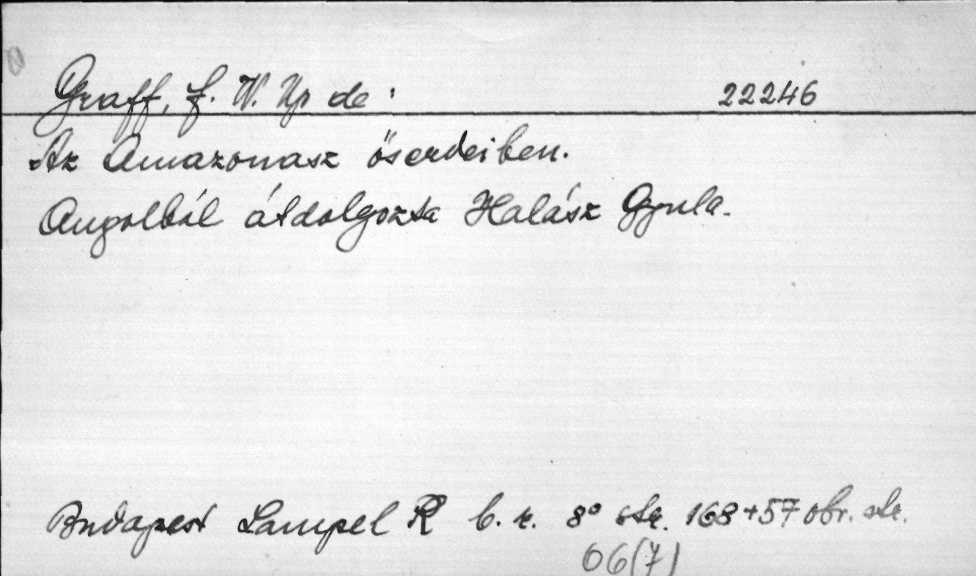 Graff, f. W. Up de: 22246
Az Amazonasz őserdeiben.
Angolból átdolgozta Halász Gyula.
Budapest Lampel R b. r. 8° str. 168+57 obr. str.
06(7)